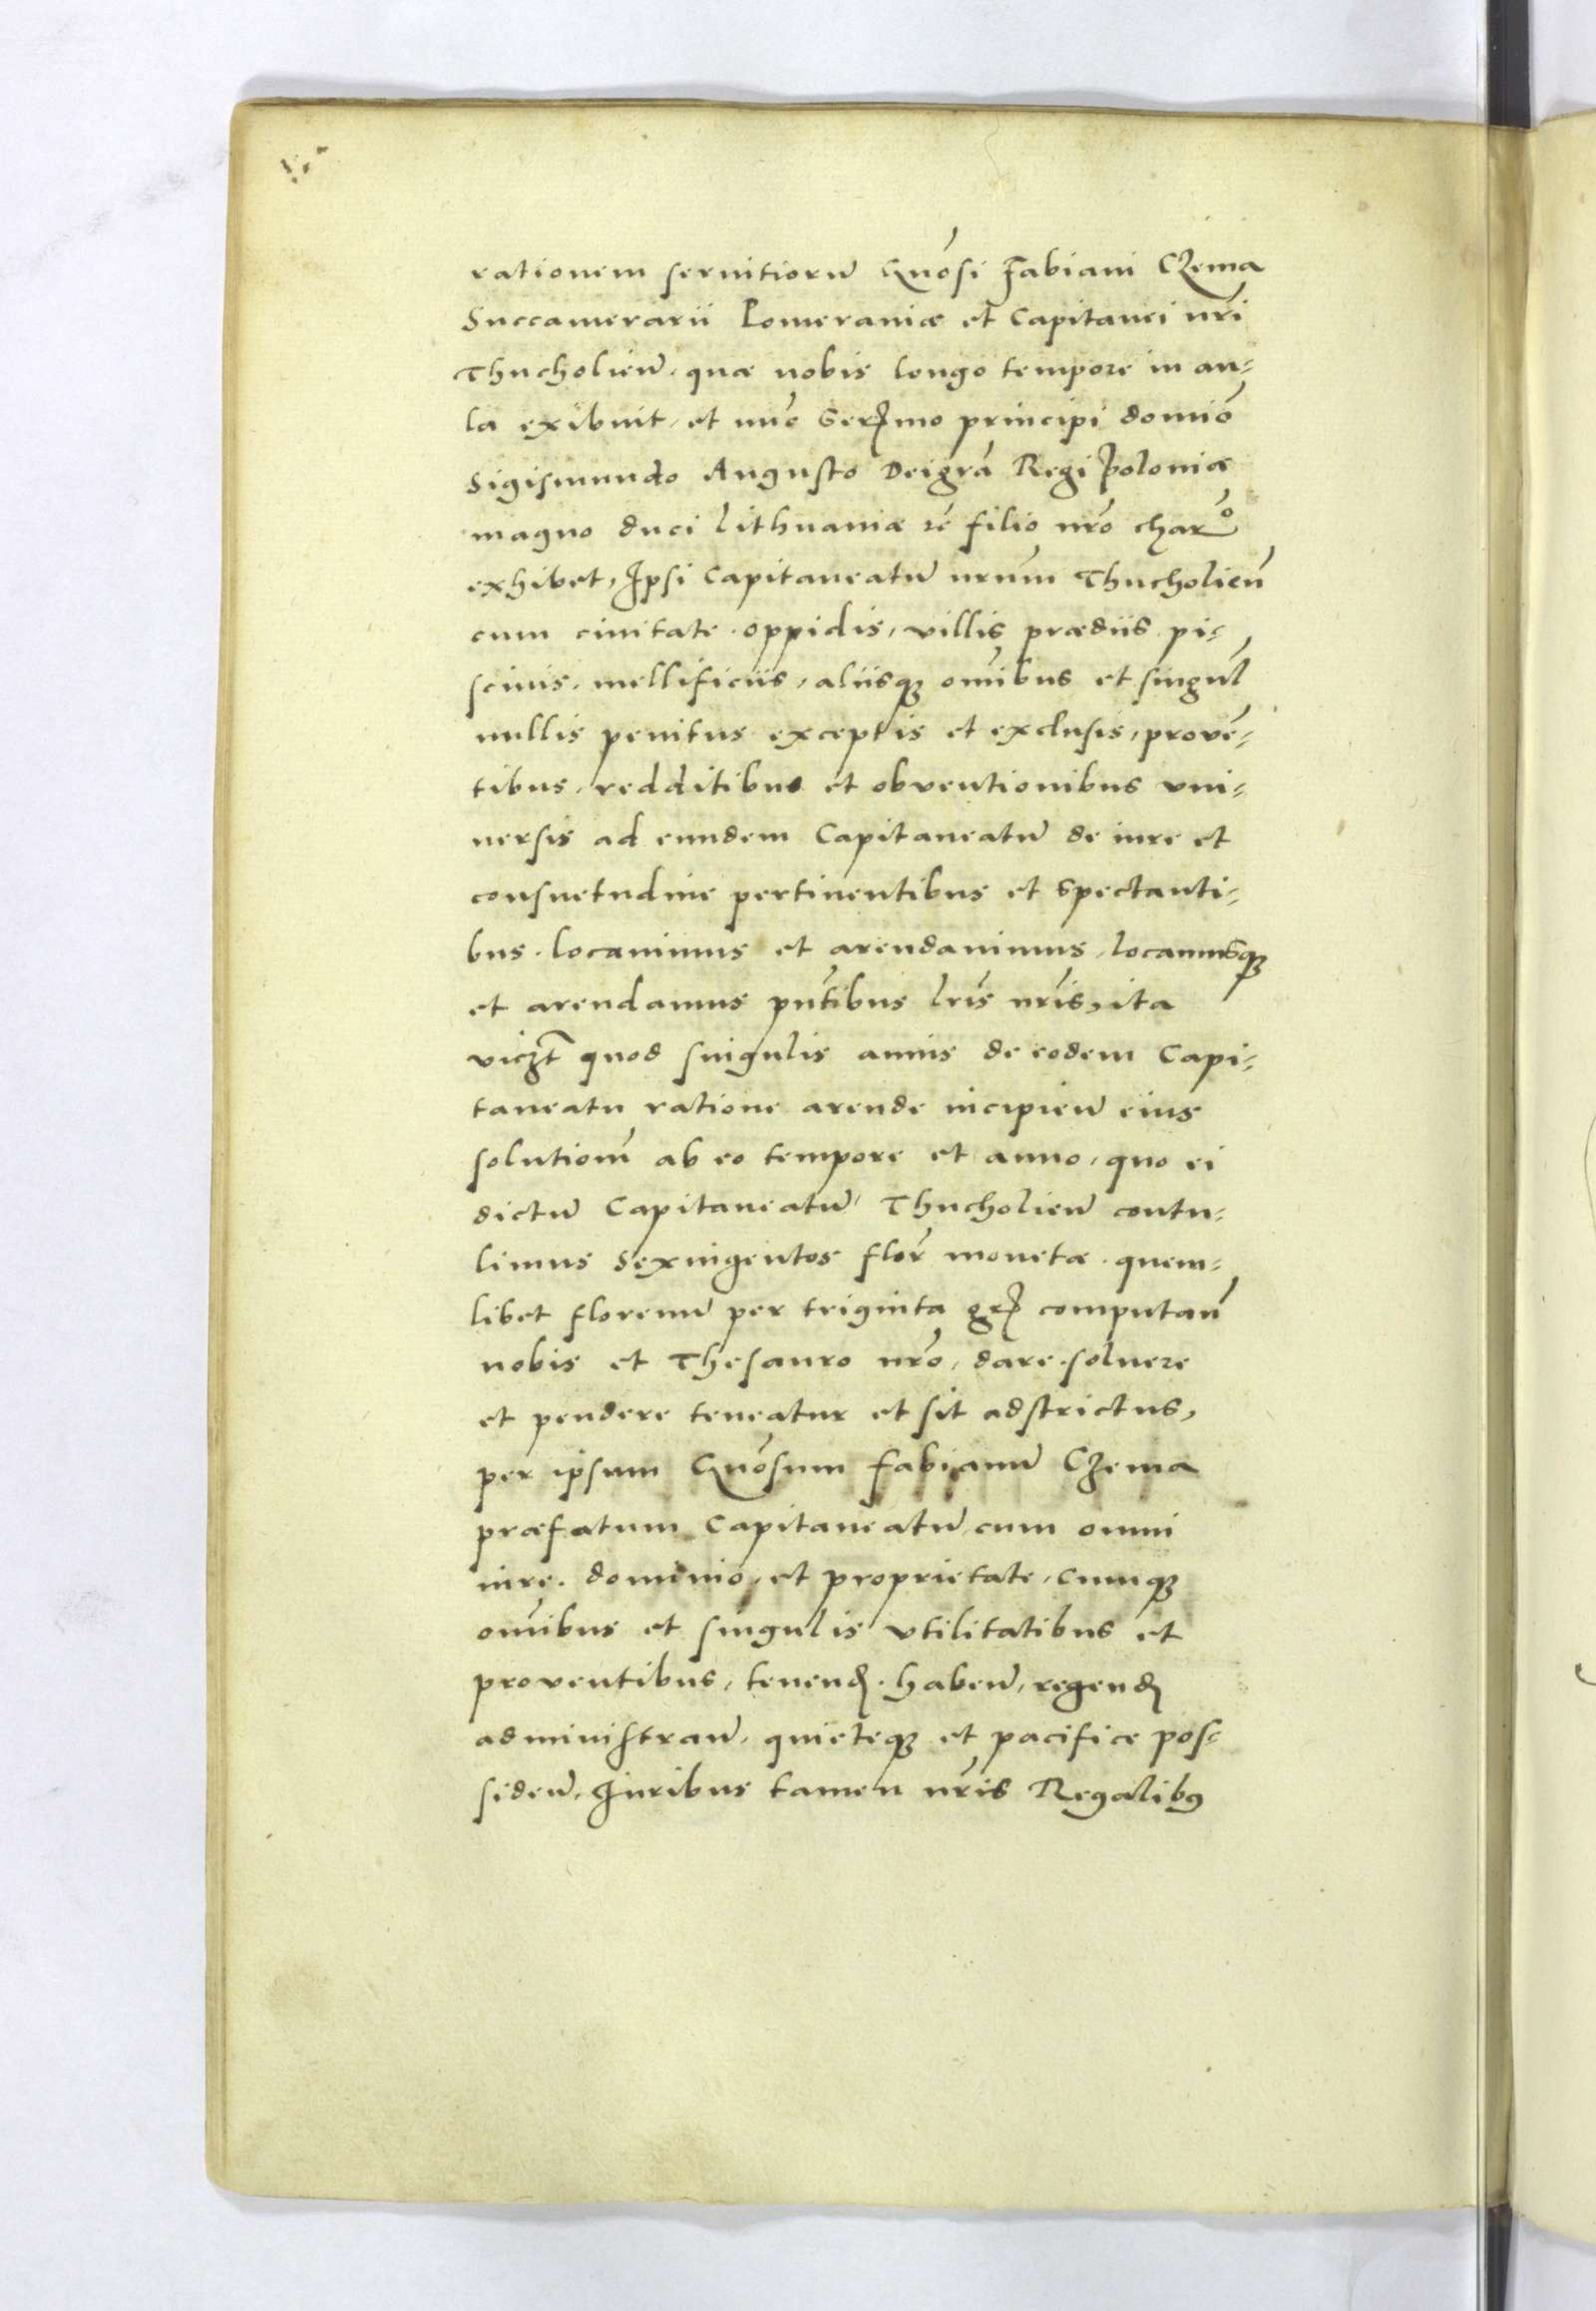 rationem seruitiorū Gnōsi Fabiani Czema
Succamerarii Pomeraniæ et Capitanei nr̄i
Thucholień. quæ nobis longo tempore in au-
la exibuit, et nūc Serꝫmo principi domiō
Sigismundo Augusto Dei gr̄a Regi Poloniæ
magno duci Lithuaniæ ꝛc̄ filio nr̄o charᵒ
exhibet, Ipsi Capitaneatū nr̄um Thucholień
cum ciuitate. oppidis, villis prædiis. pi-
scinis. mellificiis, aliisqꝫ om̄ibus et singul̄
nullis penitus exceptis et exclusis, provē-
tibus, redditibus et obventionibus vni-
uersis ad eundem Capitaneatū de iure et
consuetudine pertinentibus et spectanti-
bus. locauimus et arendauimus, locamusqꝫ
et arendamus pn̄tibus lr̄is nr̄is, ita
viczt̄ quod singulis annis de eodem Capi-
taneatu ratione arende incipień eius
solutionē ab eo tempore et anno, quo ei
dictū Capitaneatū Thucholień contu-
limus Sexingentos flor̄ monetæ. quem-
libet florenū per triginta gꝛ̄ computań
nobis et Thesauro nr̄o, dare. soluere
et pendere teneatur et sit adstrictus,
per ipsum Gnōsum Fabianū Czema
præfatum Capitaneatū cum omni
iure. dominio, et proprietate, cumqꝫ
om̄ibus et singulis vtilitatibus et
proventibus, tenenđ. habeń, regenđ
administrań, quieteqꝫ et pacifice pos-
sideń, Iuribus tamen nr̄is Regalibꝰ